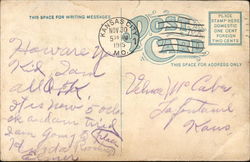 THIS SPACE FOR WRITING MESSAGES
POST CARD
KANSAS CITY
NOV 30
5 PM
1915
MO.
PLACE
STAMP HERE
DOMESTIC
ONE CENT
FOREIGN
TWO CENTS
THIS SPACE FOR ADDRESS ONLY
How are you
Kid I am
all OK
It is now 5 o clo
ck and am tired
I am going to
Velma McCabe
Kans